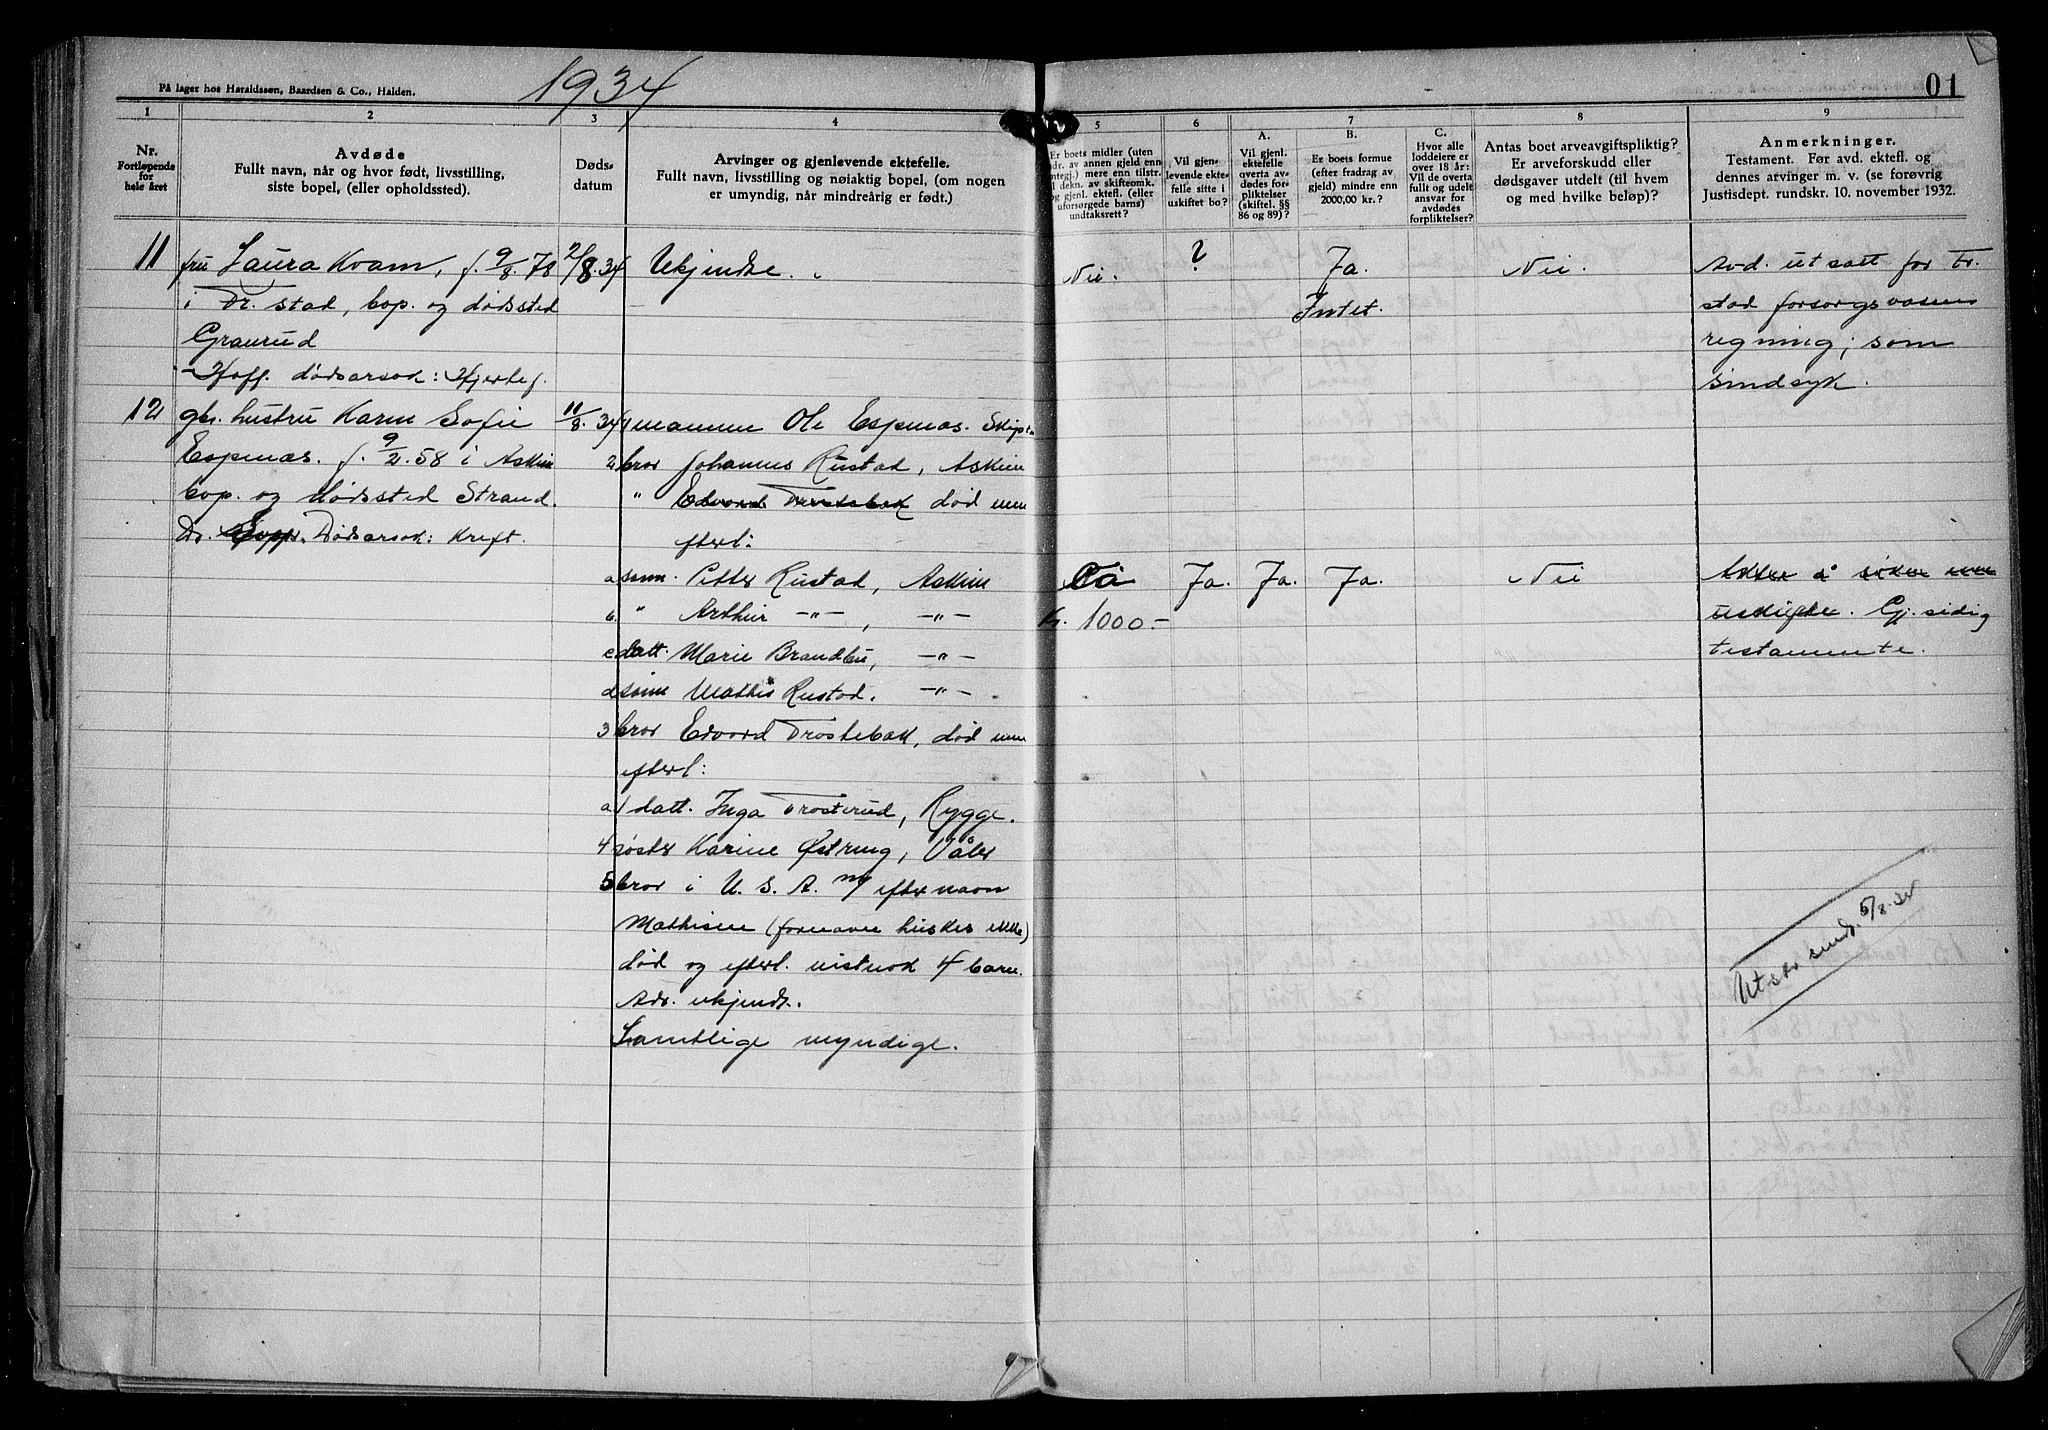 1934
01
På lager hos Haraldssøn, Baardsen & Co., Halden.
1 2 3 4 5 6 7 8 9
Nr.
Fortløpende
for
hele året
Avdøde
Fullt navn, når og hvor født, livsstilling,
siste bopel, (eller opholdssted).
Døds-
datum
Arvinger og gjenlevende ektefelle.
Fullt navn, livsstilling og nøiaktig bopel, (om nogen
er umyndig, når mindreårig er født.)
Er boets midler (uten
av annen gjeld enn
mere enn tilstr.
dekn. av skifteomk.
og gjenl. ektefl. (eller
uforsørgede barns)
undtaksrett?
Vil gjen-
levende ekte-
felle sitte i
uskiftet bo?
A.
Vil gjenl.
ektefelle
overta av-
dødes for-
pliktelser
(skiftel. §§
86 og 89)?
B.
Er boets formue
(efter fradrag av
gjeld) mindre enn
2000,00 kr.?
C.
Hvor alle
loddeiere er
over 18 år:
Vil de overta
fullt og udelt
ansvar for
avdødes
forpliktelser?
Antas boet arveavgiftspliktig?
Er arveforskudd eller
dødsgaver utdelt (til hvem
og med hvilke beløp)?
Anmerkninger.
Testament. Før avd. ektefl. og
dennes arvinger m. v. (se forøvrig
Justisdept. rundskr. 10. november 1932.
11 fru Laura Kvam, f. 9/8.78
i Tr. stad, bop. og dødssted
Graurud
Hoff. dødsarsok: Hjertef.
2/8.34
Ukjendte.
Nei.
?
Ja.
Intet.
Nei.
Avd. utsatt for Tr.
stad forsorgsvæsens
regning; som
sindsyk.
12 gbr. hustru Karen Sofie
Espenæs. f. 9/2.58 i Askim
bop. og dødssted Strand.
Dødsarsok: Kreft.
11/8.34
1 mannen Ole Espenæs.
2 bror Johannes Rustad, Askim
" Edvard Trostebak død men
efterl:
a sønn. Petter Rustad, Askim
b. " Arthur —"—, —"—
c datt. Marie Brandbu, —"—
d sønn Mathis Rustad. —"—
3 bror Edvard Trostebak, død men
efterl:
a/ datt. Inga Trosterud, Rygge.
4 søster Karine Østreng, Våler
5 bror i U. S. A. m/ efternavn
Mathisen (fornavn huskes ikke)
død og efterl. vistnok 4 barn.
Adr. ukjendt.
Samtlige myndige.
Ca
Kr. 1000.-
Ja. Ja. Ja.
Nei
Akter å
uskifte. Gj. sidig
testamente.
5/8.34